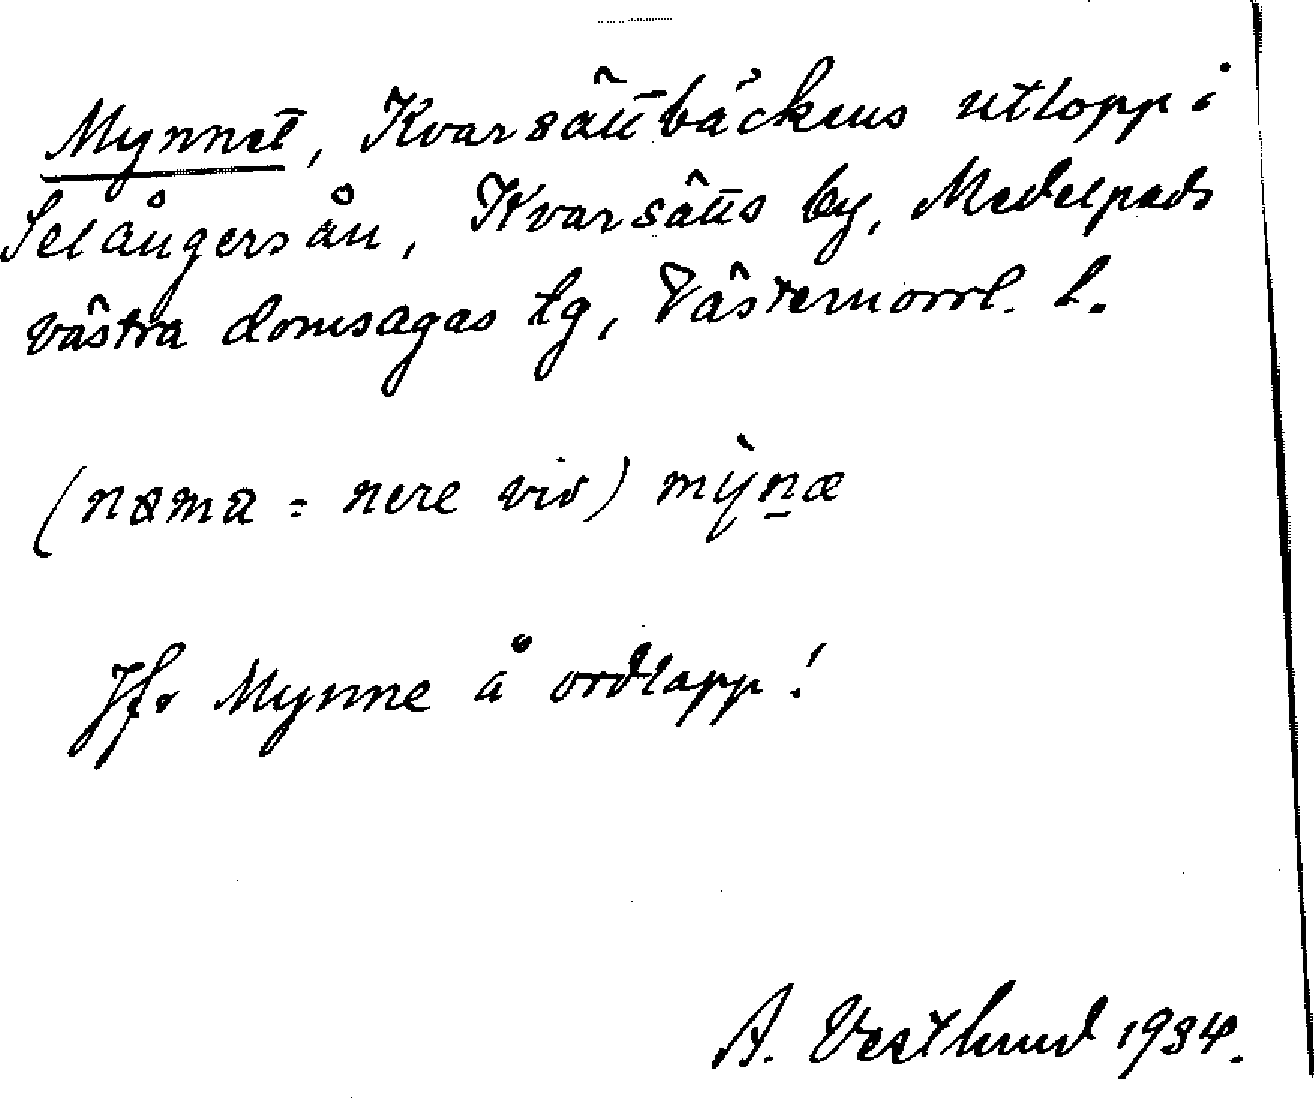 Mynnet, Kvarsättbäckens utlopp i
Selångersån, Kvarsätts by, Medelpads
västra domsagas tg, Västernorrl. l.
(nama = nere vid) mỳn̲æ
Jfr Mynne å ordlapp!
A. Vestlund 1934.